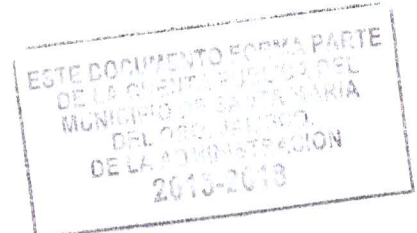 ESTE DOCUMENTO FORMA PARTE
DE LA CUENTA PUBLICA DEL
MUNICIPIO DE SANTA MARIA
DEL ORO, JALISCO.
DE LA ADMINISTRACION
2015-2018